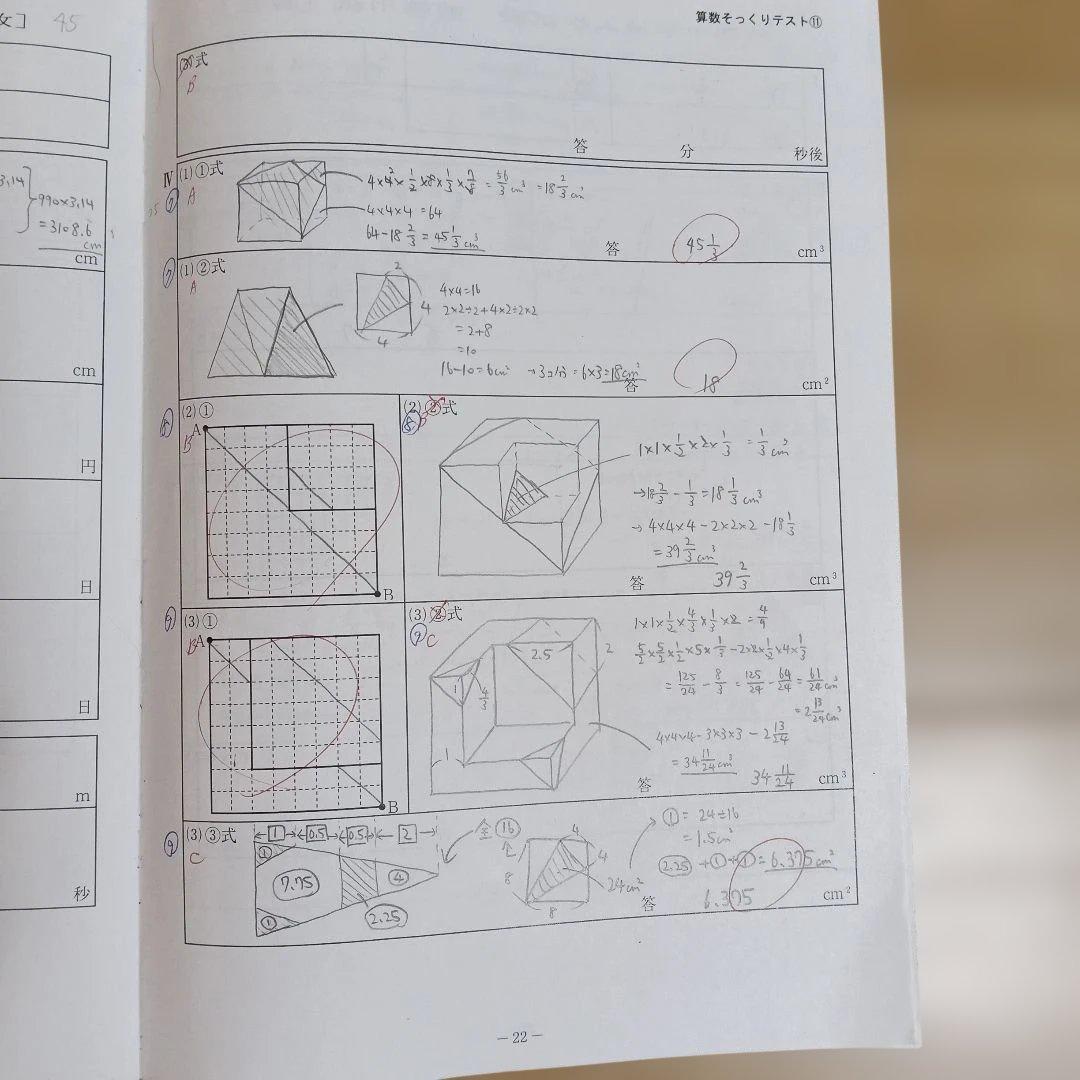 女］ 45
算数そっくりテスト⑪
3.14
990×3.14
=3108.6
cm
cm
cm
円
日
日
m
秒
式
B
答 分 秒後
Ⅳ (1)①式
A
=56/3cm³ =18 2/3cm³
4×4×4=64
64-18 2/3=45 1/3cm³
答 45 1/3 cm³
(1)②式
A
2
4
4
4×4=16
2×2÷2+4×2÷2×2
=2+8
=10
16-10=6cm² →3コ分=6×3=18cm²
答 18 cm²
(2)①
B
A
B
(2)②式
1×1×1/2×2×1/3 =1/3cm³
→18 2/3-1/3=18 1/3cm³
→4×4×4-2×2×2-18 1/3
=39 2/3cm³
答 39 2/3 cm³
(3)①
B
A
B
(3)②式
C
2.5
2
1
4/3
1×1×1/2×4/3×1/3×2=4/9
5/2×5/2×1/2×5×1/3-2×2×1/2×4×1/3
=125/24-8/3=125/24-64/24=61/24cm³
=2 13/24cm³
4×4×4-3×3×3-2 13/24
=34 11/24cm³
答 34 11/24 cm³
(3)③式
C
1 0.5 0.5 2
全⑯
①
7.75
④
2.25
①
4
4
8
8
24cm²
①=24÷16
=1.5cm²
2.25+①+①=6.375cm²
答 6.375 cm²
－22－